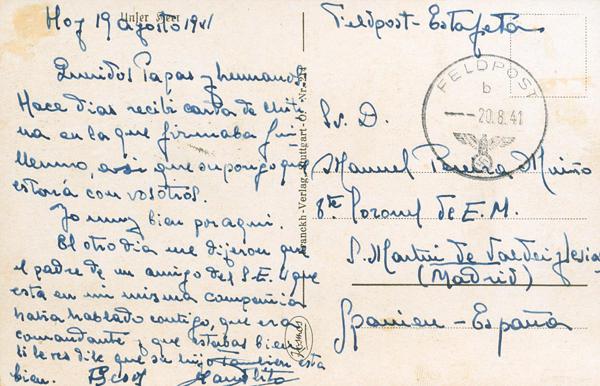 Unser Heer
Hoy 19 agosto 1941
Queridos Papas y hermanos
Hace dias recibi carta de
na en la que firmaba
asi que supongo que
estaria con vosotros.
Yo muy bien por aqui.
El otro dia me dijeron que
el padre de un amigo del S.E.U que
esta en mi misma compañia
habia hablado contigo, que era
comandante y que estabas bien
si le ves dile que su hijo tambien esta
bien. Besos Manolito
Franckh-Verlag Stuttgart-O. / Nr. 214
Kosmos
Feldpost - Estafeta
FELDPOST
b
20.8.41
Sr. D.
Manuel Muiño
Tte Coronel de E.M.
S. Martin de Valdeiglesias
(Madrid)
Spanien - España